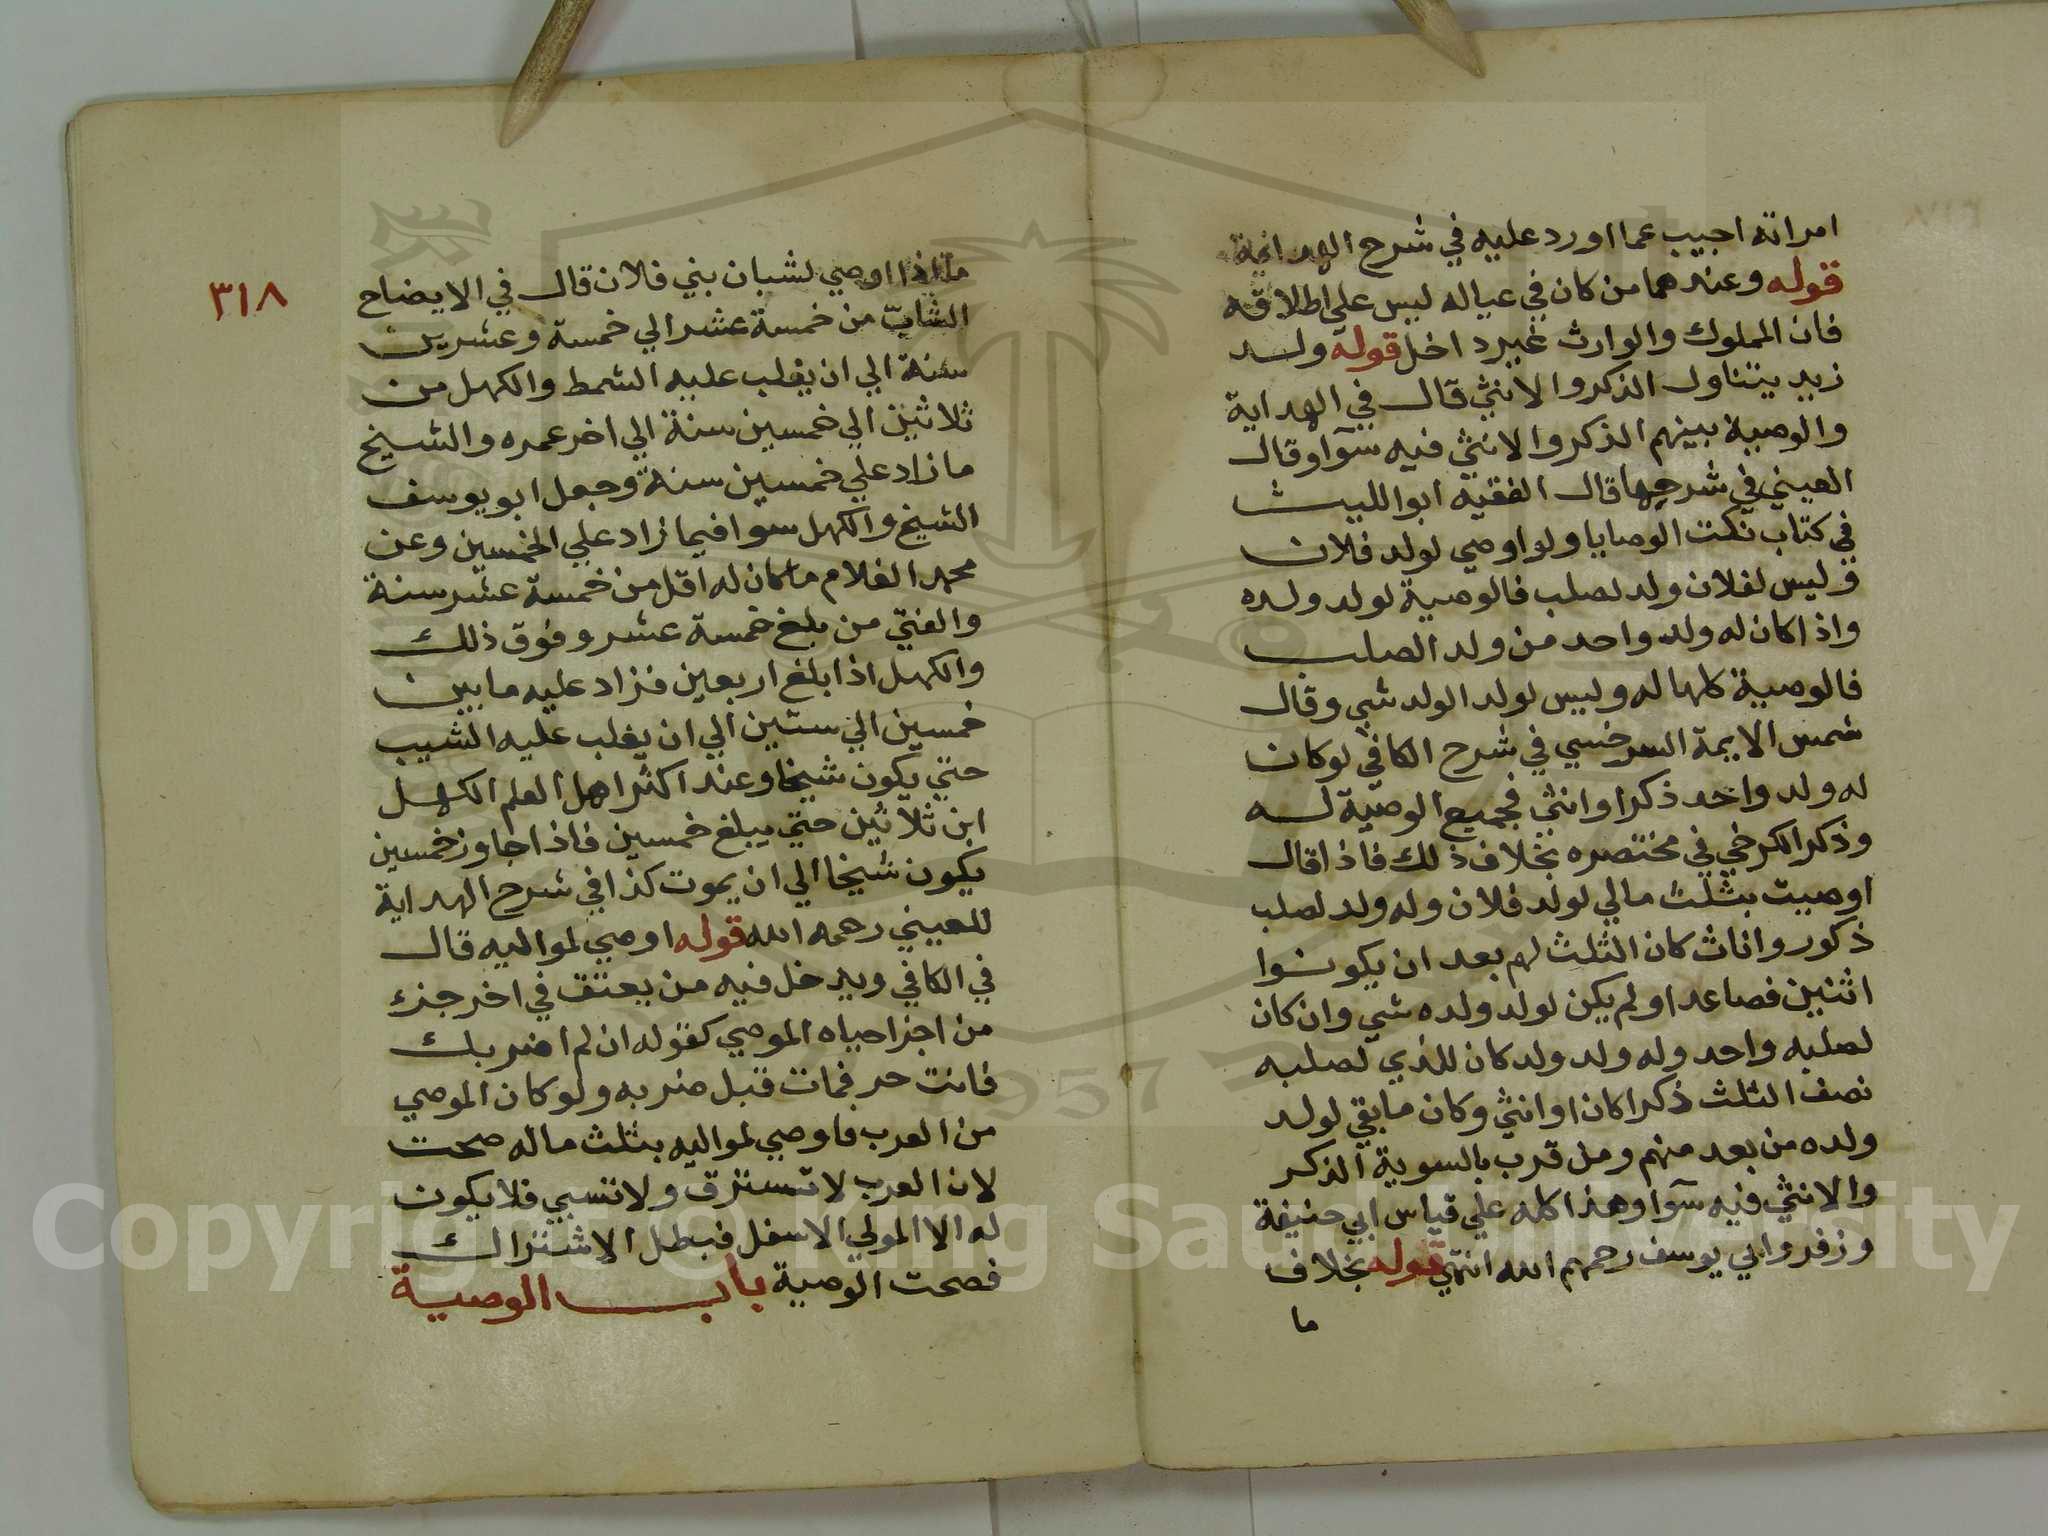 امراته اجيب عما اورد عليه في شرح الهداية
قوله وعندهما من كان في عياله ليس علي اطلاقه
فان المملوك والوارث غير داخل قوله ولد
زيد يتناول الذكر والانثي قال في الهداية
والوصية بينهم الذكر والانثي فيه سوآ وقال
العيني في شرحها قال الفقيه ابو الليث
في كتاب نكت الوصايا ولو اوصي لولد فلان
وليس لفلان ولد لصلب فالوصية لولد ولده
واذا كان له ولد واحد من ولد الصلب
فالوصية كلها له وليس لولد الولد شي وقال
شمس الايمة السرخسي في شرح الكافي لو كان
له ولد واحد ذكرا او انثي فجميع الوصية له
وذكر الكرخي في مختصره بخلاف ذلك فاذا قال
اوصيت بثلث مالي لولد فلان وله ولد لصلب
ذكور واناث كان الثلث لهم بعد ان يكونوا
اثنين فصاعدا ولم يكن لولد ولده شي وان كان
لصلبه واحد وله ولد ولد كان للذي لصلبه
نصف الثلث ذكرا كان او انثي وكان ما بقي لولد
ولده من بعد منهم ومن قرب بالسوية الذكر
والانثي فيه سوآ وهذا كله علي قياس ابي حنيفة
وزفر وابي يوسف رحمهم الله انتهي قوله بخلاف
ما
٣١٨
ما اذا اوصي لشبان بني فلان قال في الايضاح
الشابّ من خمسة عشر الي خمسة وعشرين
سنة الي ان يغلب عليه الشمط والكهل من
ثلاثين الي خمسين سنة الي اخر عمره والشيخ
ما زاد علي خمسين سنة وجعل ابو يوسف
الشيخ والكهل سوا فيما زاد علي الخمسين وعن
محمد الغلام ما كان له اقل من خمسة عشر سنة
والفتي من بلغ خمسة عشر وفوق ذلك
والكهل اذا بلغ اربعين فزاد عليه ما بين
خمسين الي ستين الي ان يغلب عليه الشيب
حتي يكون شيخا وعند اكثر اهل العلم الكهل
ابن ثلاثين حتي يبلغ خمسين فاذا جاوز خمسين
يكون شيخا الي ان يموت كذا في شرح الهداية
للعيني رحمه الله قوله اوصي لمواليه قال
في الكافي ويدخل فيه من يعتق في اخر جزء
من اجزا حياه الموصي كقوله ان لم اضربك
فانت حر فمات قبل ضربه ولو كان الموصي
من العرب فاوصي لمواليه بثلث ماله صحت
لان العرب لا تسترق ولا تسبي فلا يكون
له الا المولي الاسفل فبطل الاشتراك
فصحت الوصية باب الوصية
Copyright © King Saud University
1957